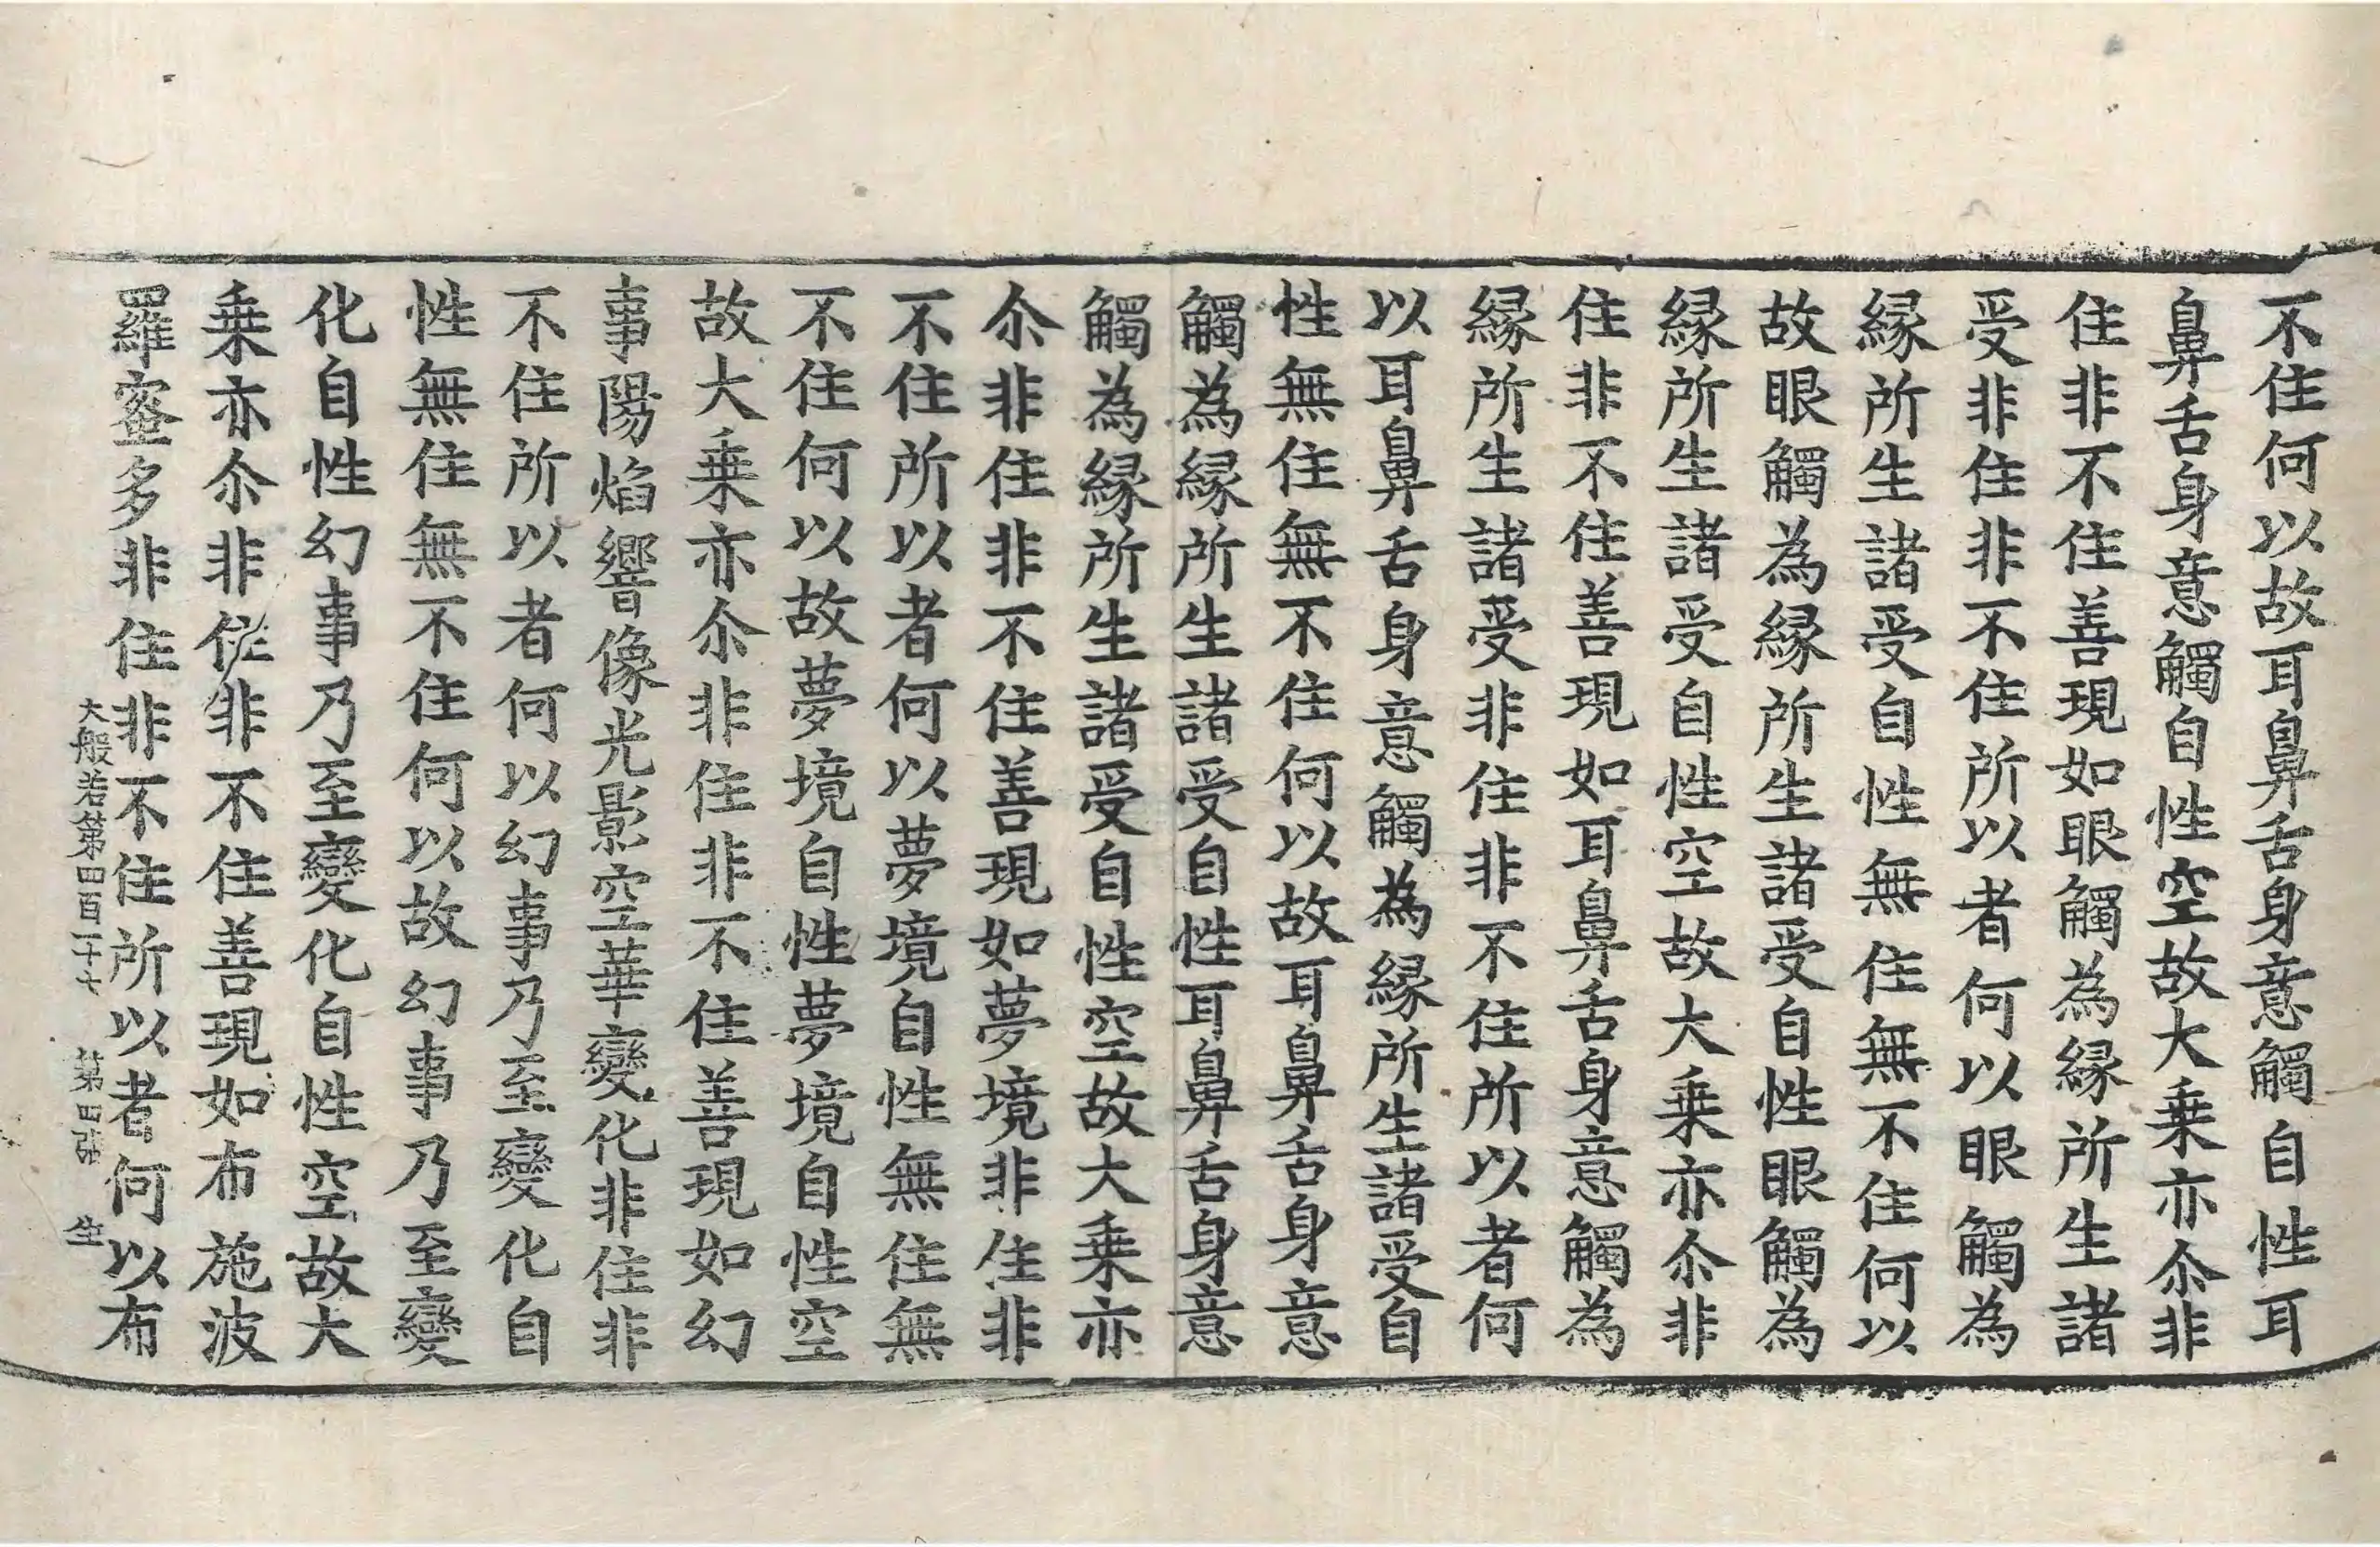 不住何以故耳鼻舌身意觸自性耳
鼻舌身意觸自性空故大乗亦尒非
住非不住善現如眼觸為縁所生諸
受非住非不住所以者何以眼觸為
縁所生諸受自性無住無不住何以
故眼觸為縁所生諸受自性眼觸為
縁所生諸受自性空故大乗亦尒非
住非不住善現如耳鼻舌身意觸為
縁所生諸受非住非不住所以者何
以耳鼻舌身意觸為縁所生諸受自
性無住無不住何以故耳鼻舌身意
觸為縁所生諸受自性耳鼻舌身意
觸為縁所生諸受自性空故大乗亦
尒非住非不住善現如夢境非住非
不住所以者何以夢境自性無住無
不住何以故夢境自性夢境自性空
故大乗亦尒非住非不住善現如幻
事陽焰響像光影空華變化非住非
不住所以者何以幻事乃至變化自
性無住無不住何以故幻事乃至變
化自性幻事乃至變化自性空故大
乗亦尒非住非不住善現如布施波
羅蜜多非住非不住所以者何以布
大般若第四百一十七 第四張 生